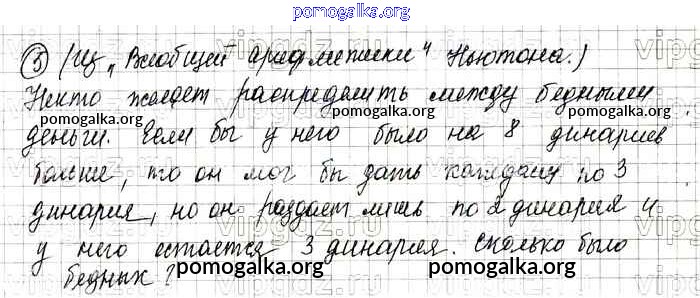 pomogalka.org
⑤ (Из „Всеобщей арифметики" Ньютона.)
Некто желает распределить между бедными
pomogalka.org pomogalka.org pomogalka.org
деньги. Если бы у него было на 8 динариев
больше, то он мог бы дать каждому по 3
pomogalka.org pomogalka.org pomogalka.org
динария, но он раздаёт лишь по 2 динария и
у него остается 3 динария. Сколько было
бедных?
pomogalka.org pomogalka.org